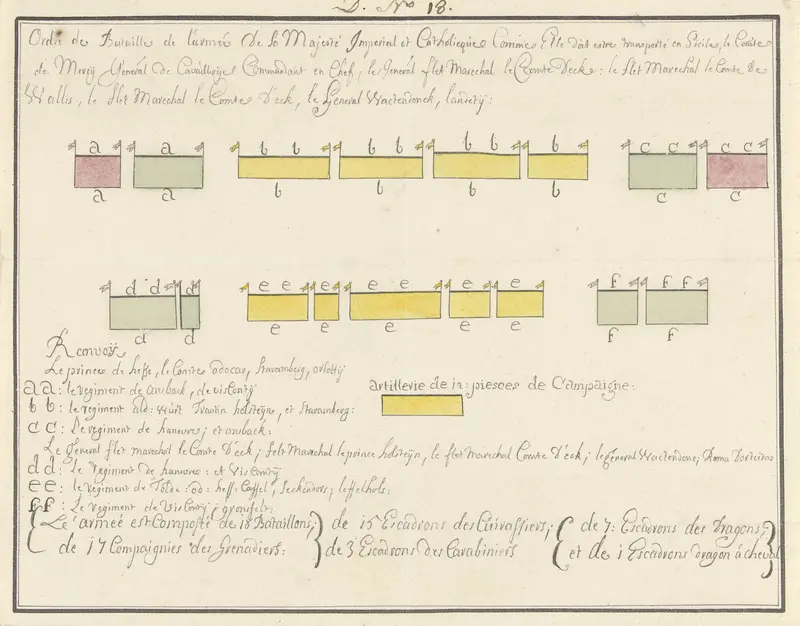 D. No 18.
Ordre de Bataille de l'armée de Sa Majesté Imperial et Catholicque Comme Elle doit estre transporté en Sicile, le Comte
de Mercy General de Cavallerye Commandant en Chef, le General flet Marechal le Comte Deck: le flet Marechal le Comte de
Wallis, le flet Marechal le Comte D'eck, le General Wactendonck,
a a b b b b b b b c c c c
a a b b b b c c
d d d e e e e e e e f f f
d d e e e e e f f
Renvoÿ
Le prince de hesse, le Comte odocar, Staramberg,
aa: le regiment de ansback, de visconty
artillerie de 12: piesces de Campaigne:
bb: le regiment holsteÿn, et Staramberg:
cc: Le regiment de hanovre; et ansback:
Le General flet marechal le Comte D'eck; Marechal le prince holsteÿn, le flet Marechal Comte D'eck; le general Roma
dd: Le Regiment de hanovre: et Visconty
ee: le Regiment de hess: Cassel, Seckendors; leffelhols:
ff: Le regiment de Visconty;
Le armeé est Composté de 18 Bataillons; de 15 Escadrons des Cuirassiers; de 7: Escadrons des Dragons;
de 17 Compaignies des Grenadiers: de 3 Escadrons des Carabiniers et de 1 Escadrons dragon á cheval